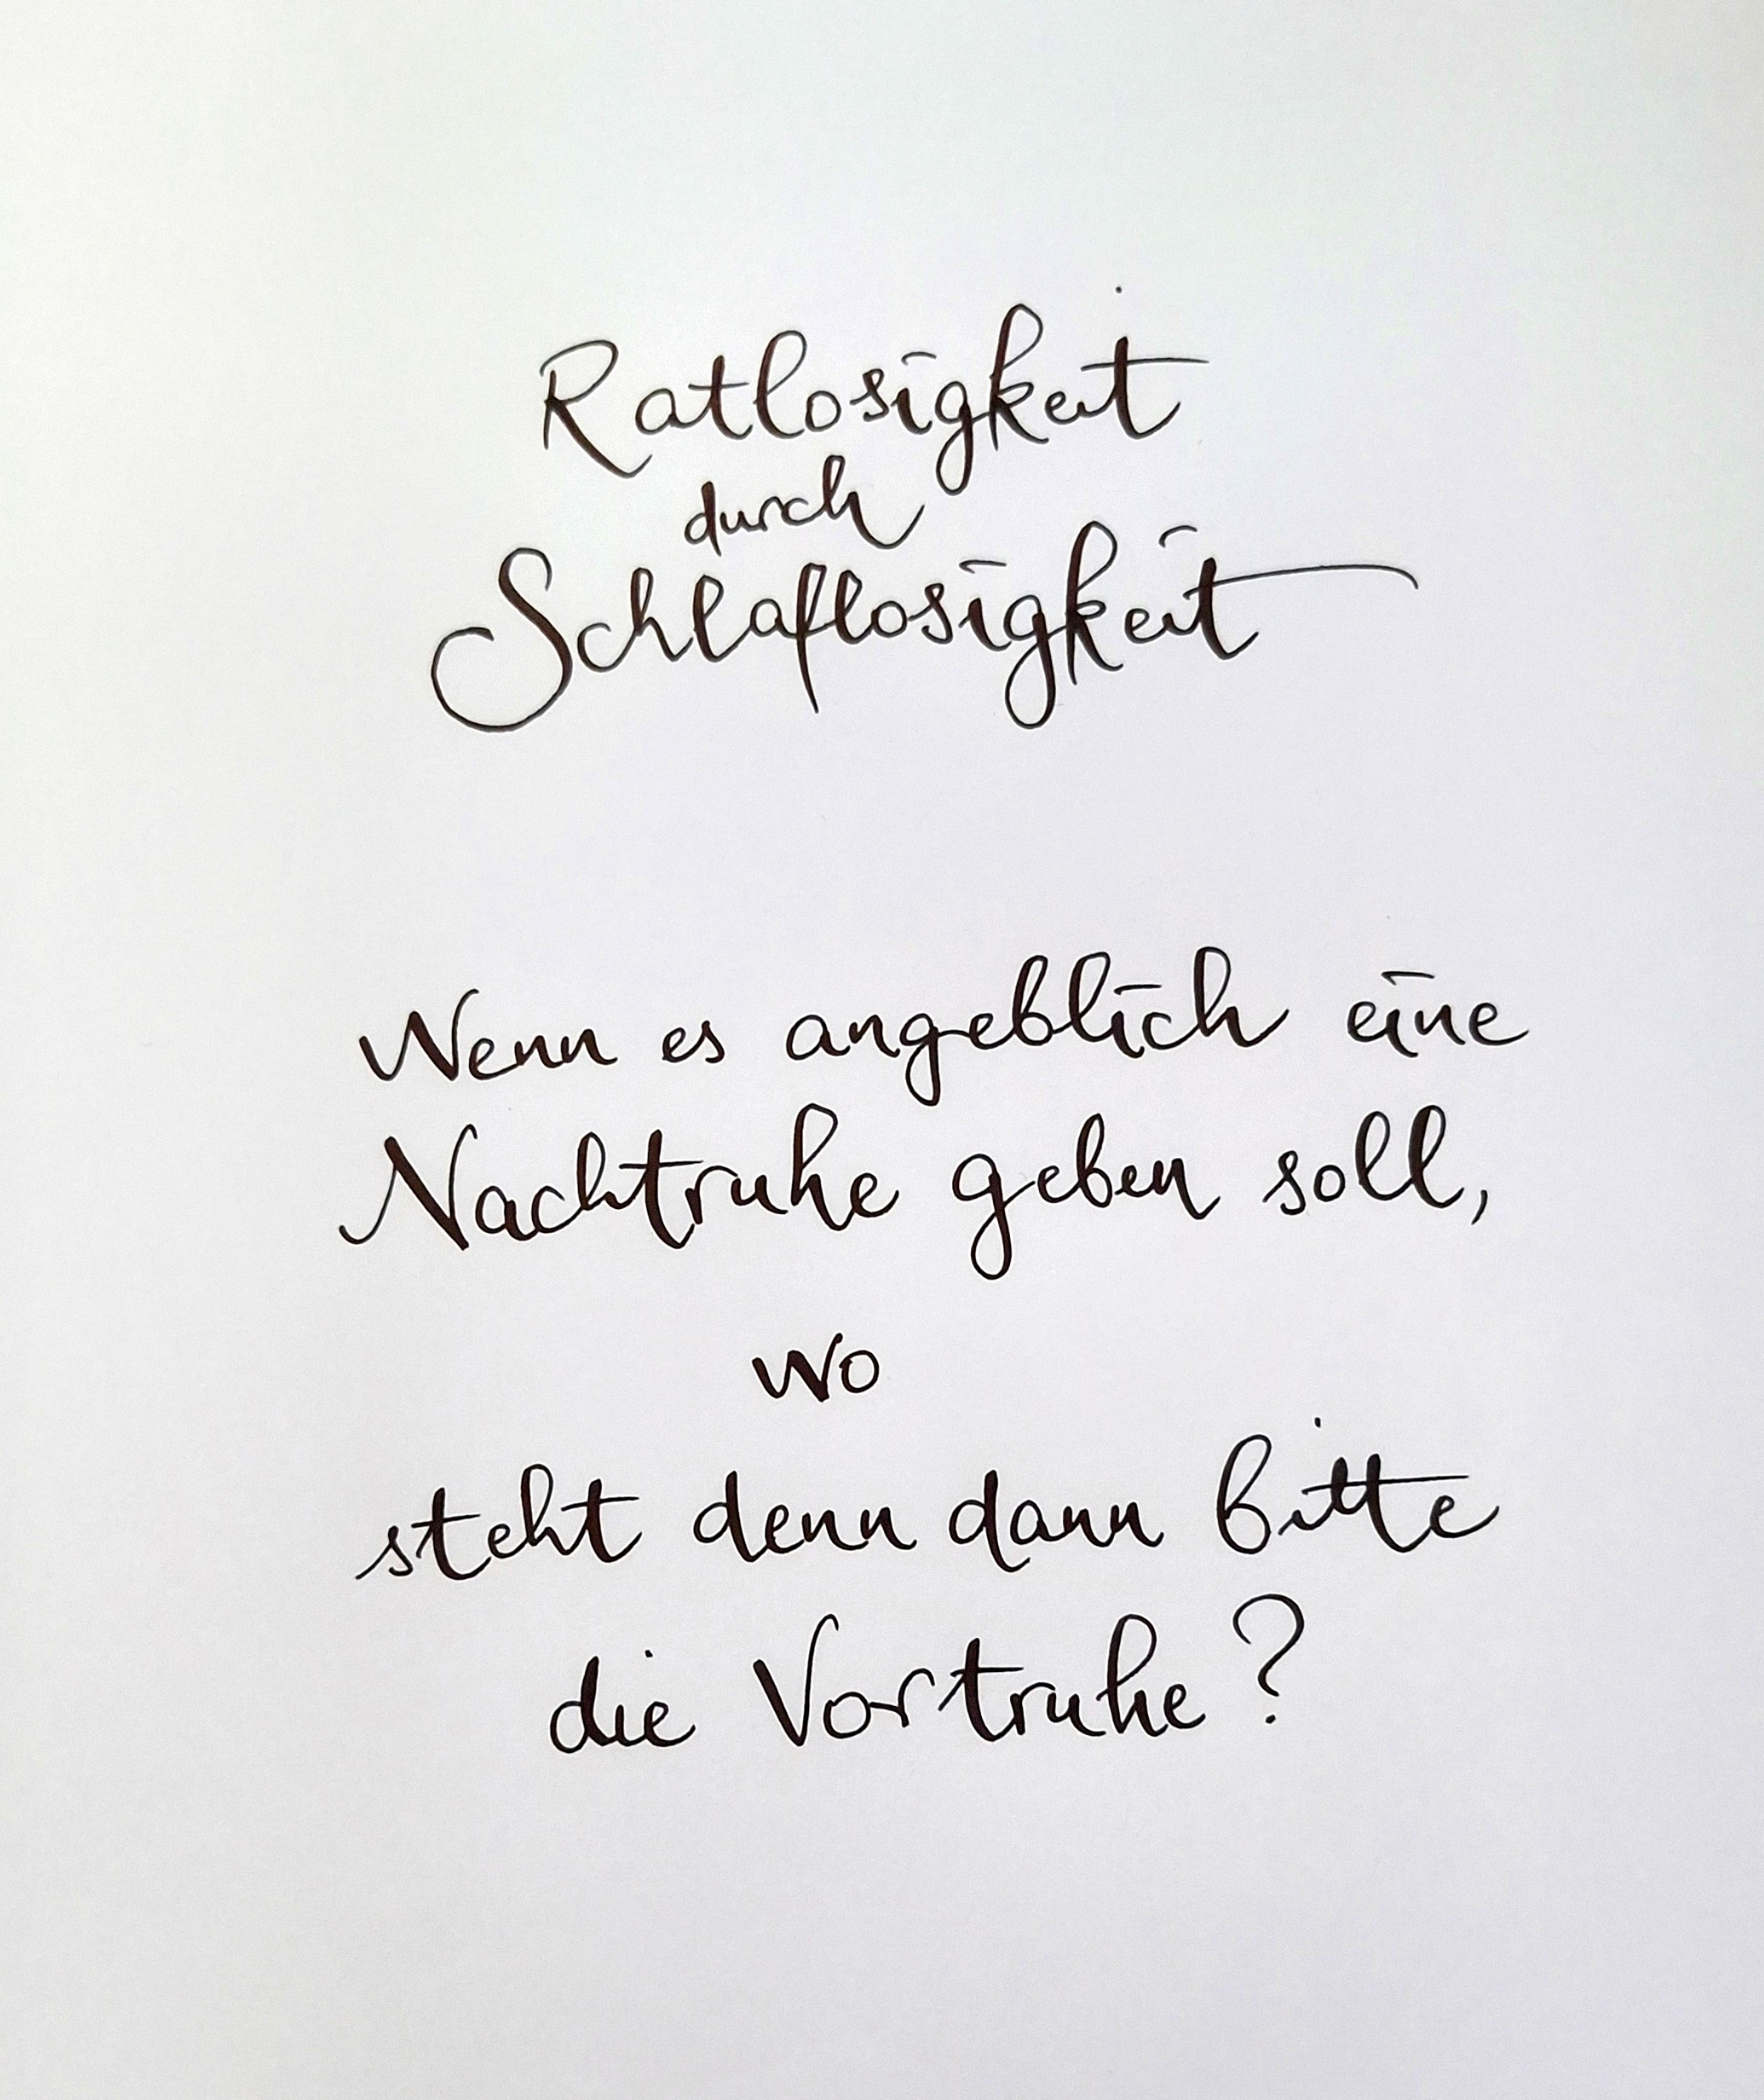 Ratlosigkeit
durch
Schlaflosigkeit
Wenn es angeblich eine
Nachtruhe geben soll,
wo
steht denn dann bitte
die Vortruhe?